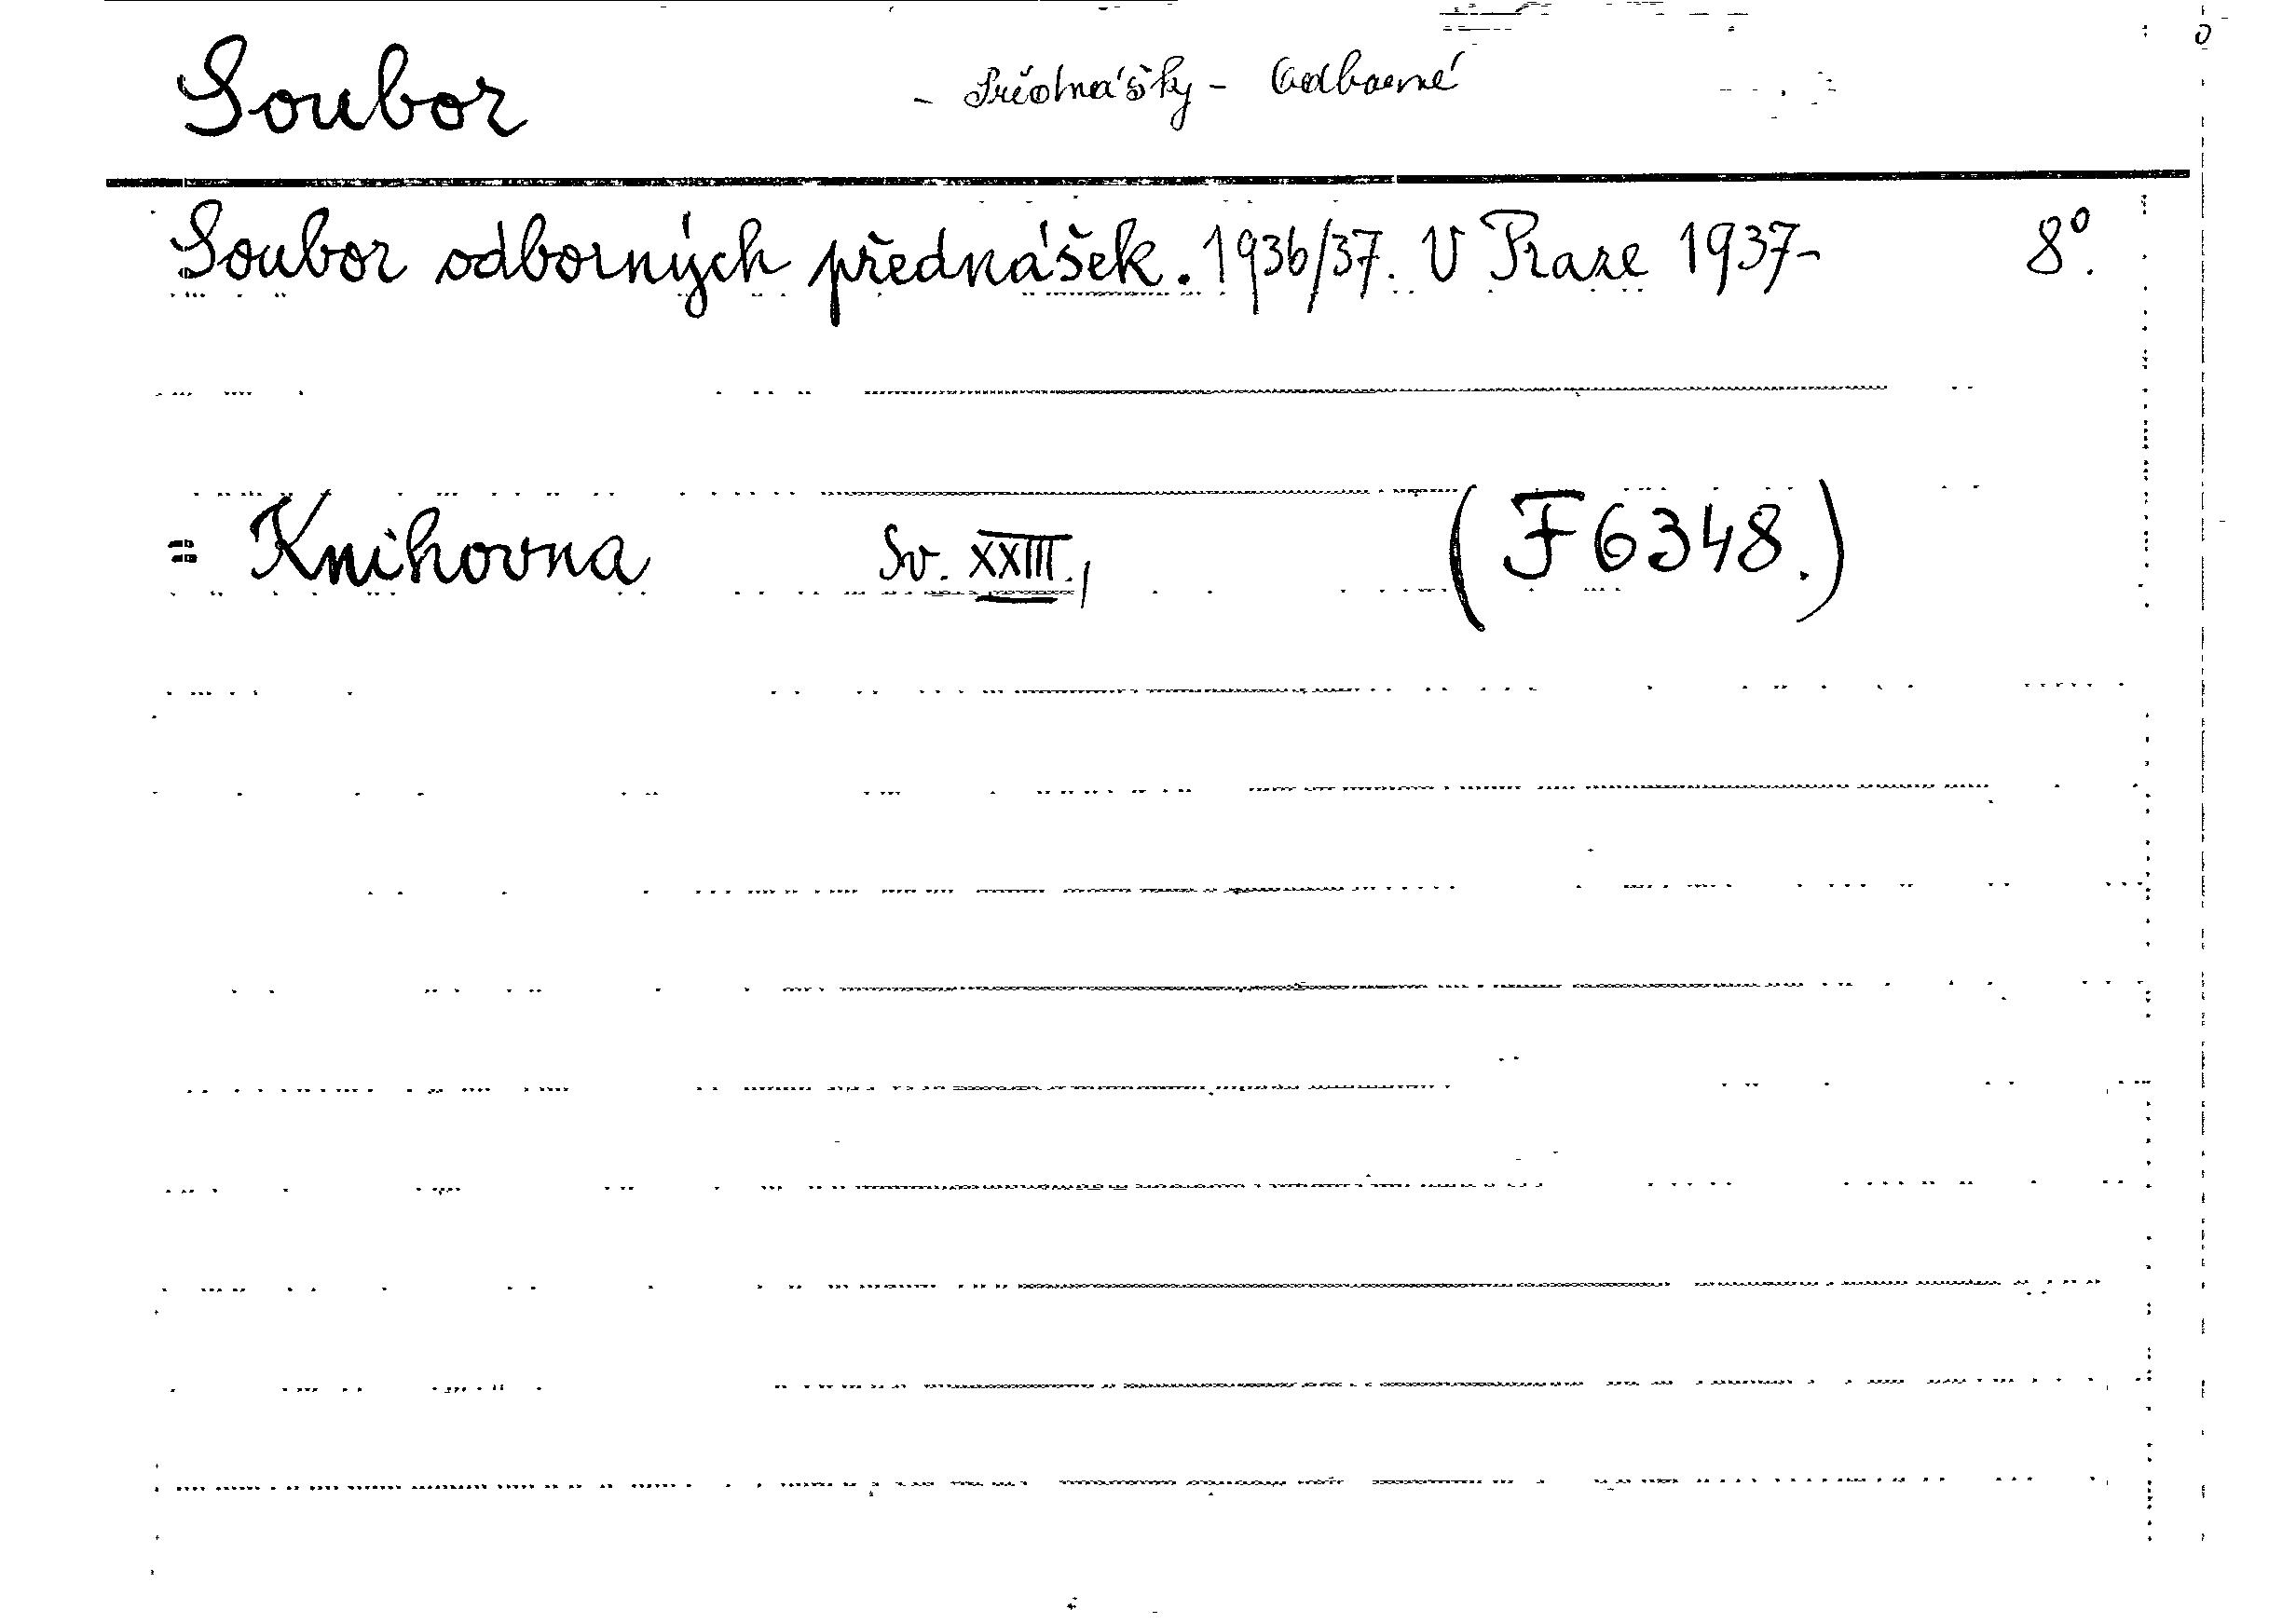 Soubor - Přednášky - Odborné
Soubor odborných přednášek. 1936/37. V Praze 1937- 8°.
= Knihovna Sv. XXIII., (F 6348.)